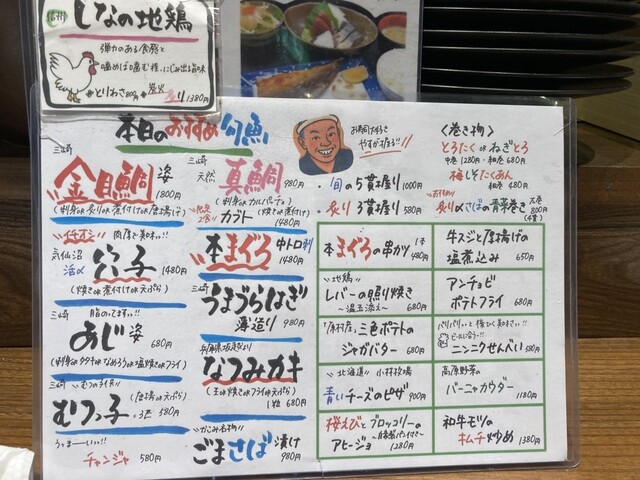 信州
しなの地鶏
弾力のある食感と
噛めば噛む程、にじみ出る旨味
とりわさ
炭火
1380円
本日のおすすめ旬魚
三崎
金目鯛 姿
1800円
(刺身or炙りor煮付けor唐揚げ)
イチオシ
肉厚で美味い!!
気仙沼
活〆
穴子
1480円
(焼きor煮付けor天ぷら)
三崎
脂のってます!!
あじ 姿
680円
(刺身orタタキorなめろうor塩焼きorフライ)
三崎
むつっ子
(唐揚or天ぷら)
580円
チャンジャ 580円
三崎
天然
真鯛 980円
(刺身orカルパッチョ)
カブト
(焼きor煮付け)
1480円
本まぐろ 中トロ刺
1480円
三崎
うまづらはぎ
薄造り 980円
兵庫県坂越より
なつみカキ
(生or焼きorフライor天ぷら)
1粒 680円
ごまさば 漬け
980円
お寿司大好き
やすが握る!!
・旬の5貫握り 1000円
・炙り 3貫握り 580円
〈巻き物〉
とろたく or ねぎとろ
中巻 1280円・細巻 680円
梅しそたくあん
細巻 480円
炙り〆さばの青菜巻き
太巻
800円
本まぐろの串カツ
1本
480円
牛スジと厚揚げの
塩煮込み 650円
地鶏
レバーの照り焼き
〜温玉添え〜 680円
アンチョビ
ポテトフライ 680円
三色ポテトの
ジャガバター 680円
ビールに合う!!
ニンニクせんべい 580円
北海道 小林牧場
青いチーズのピザ 900円
高原野菜の
バーニャカウダー
1180円
桜えびとブロッコリーの
アヒージョ 1280円
和牛モツの
キムチ炒め 1380円